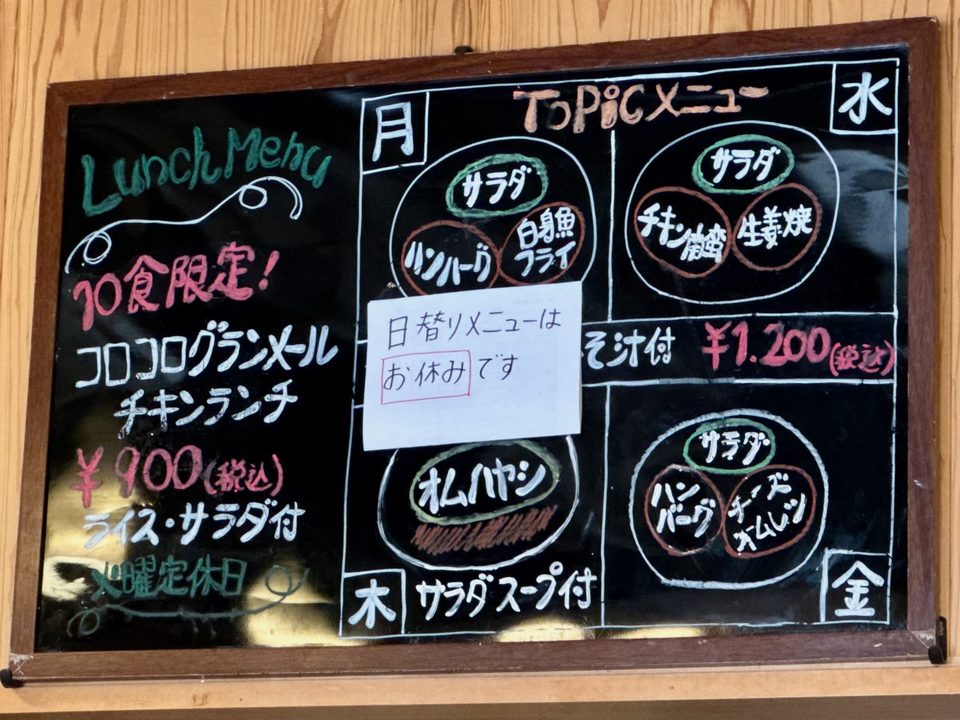 Lunch Menu
10食限定!
コロコログランメール
チキンランチ
¥900(税込)
ライス・サラダ付
火曜定休日
TOPICメニュー
月
サラダ
ハンバーグ
白身魚
フライ
水
サラダ
チキン南蛮
生姜焼
日替りメニューは
お休みです
そ汁付 ¥1.200(税込)
オムハヤシ
木
サラダスープ付
サラダ
ハン
バーグ
チーズ
オムレツ
金